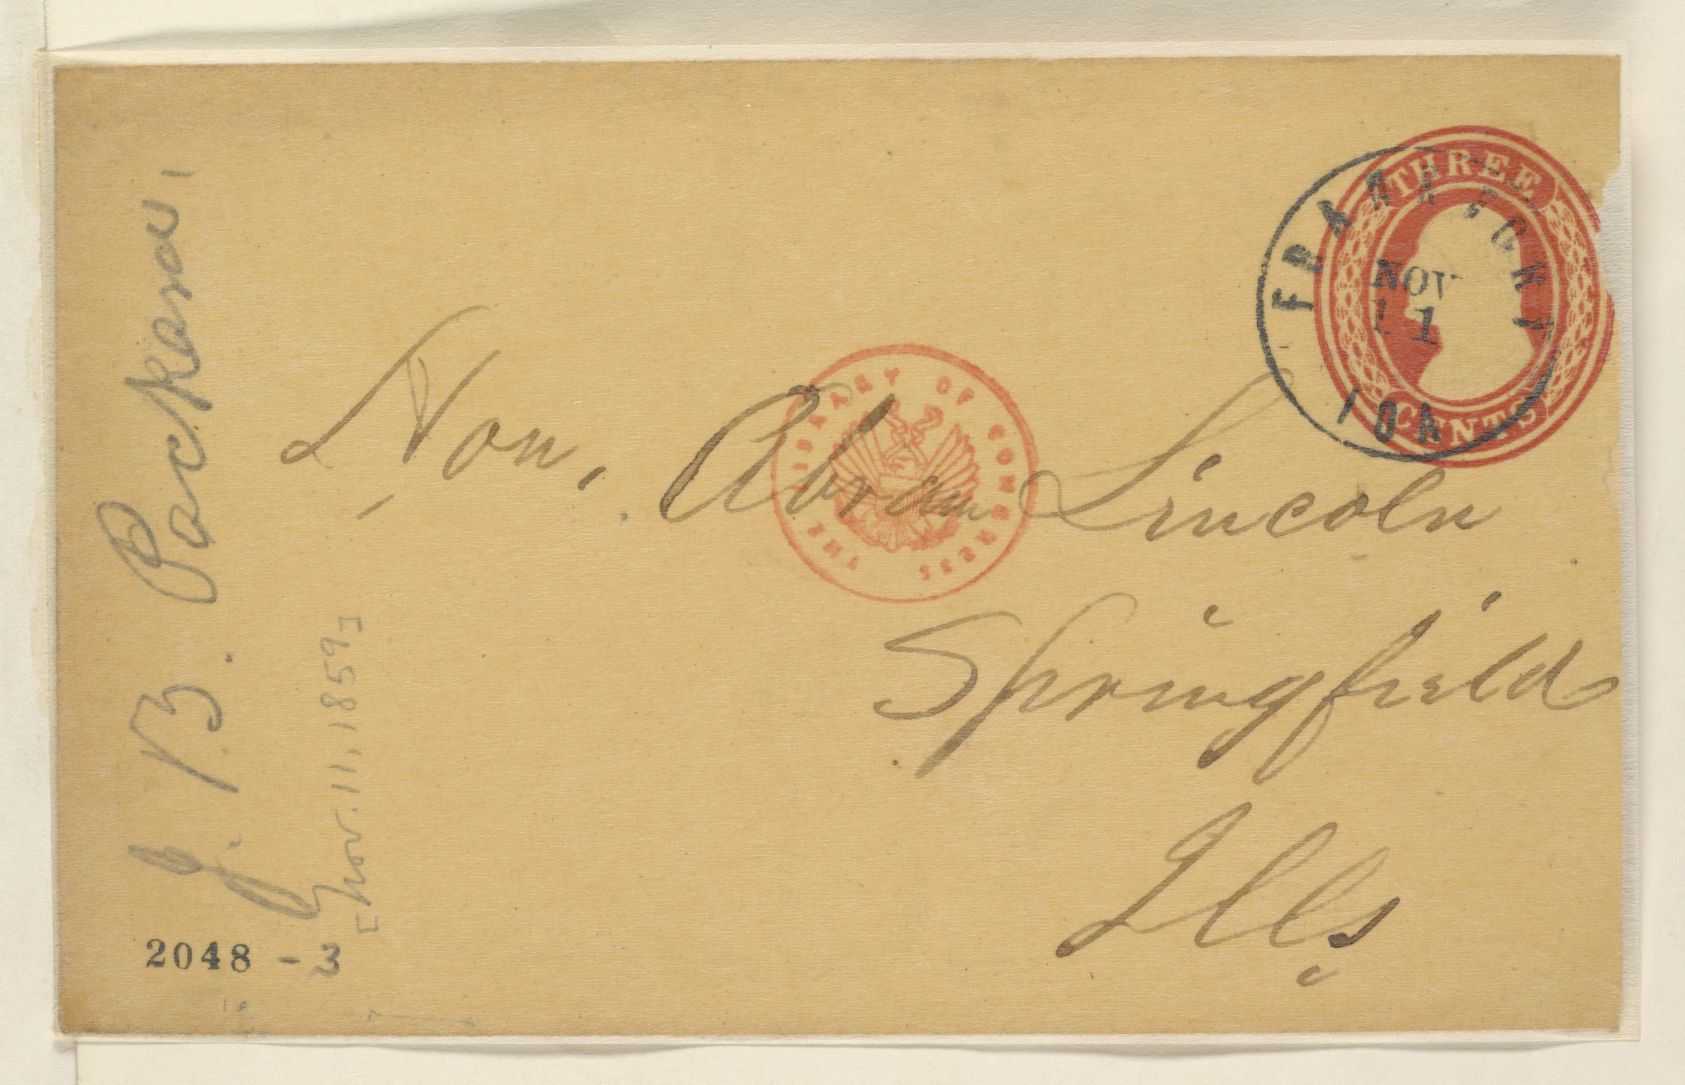 J. B. Packard,
[Nov. 11, 1859]
THREE
CENTS
FRANKFORT
NOV
11
IOA
THE LIBRARY OF CONGRESS
Hon. Abram Lincoln
Springfield
Ills
2048 - 3